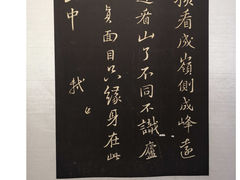 橫看成嶺側成峰遠
近看山了不同不識廬
真面目只緣身在此
山中 軾